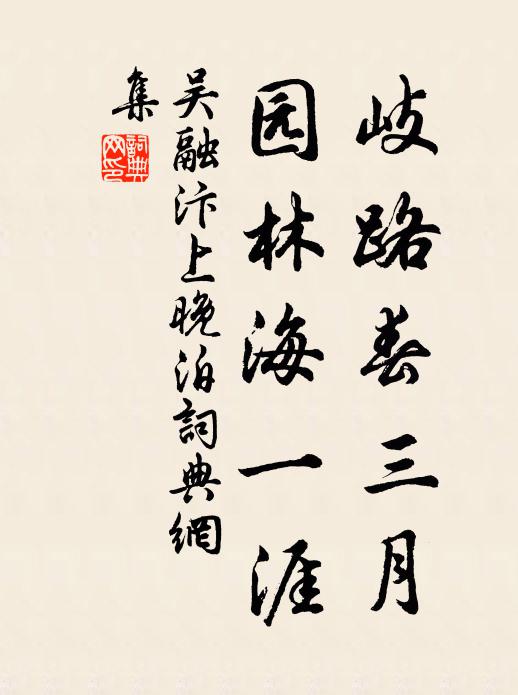 歧路春三月
园林海一涯
吴融汴上晚泊詞典網
集
詞典
网印